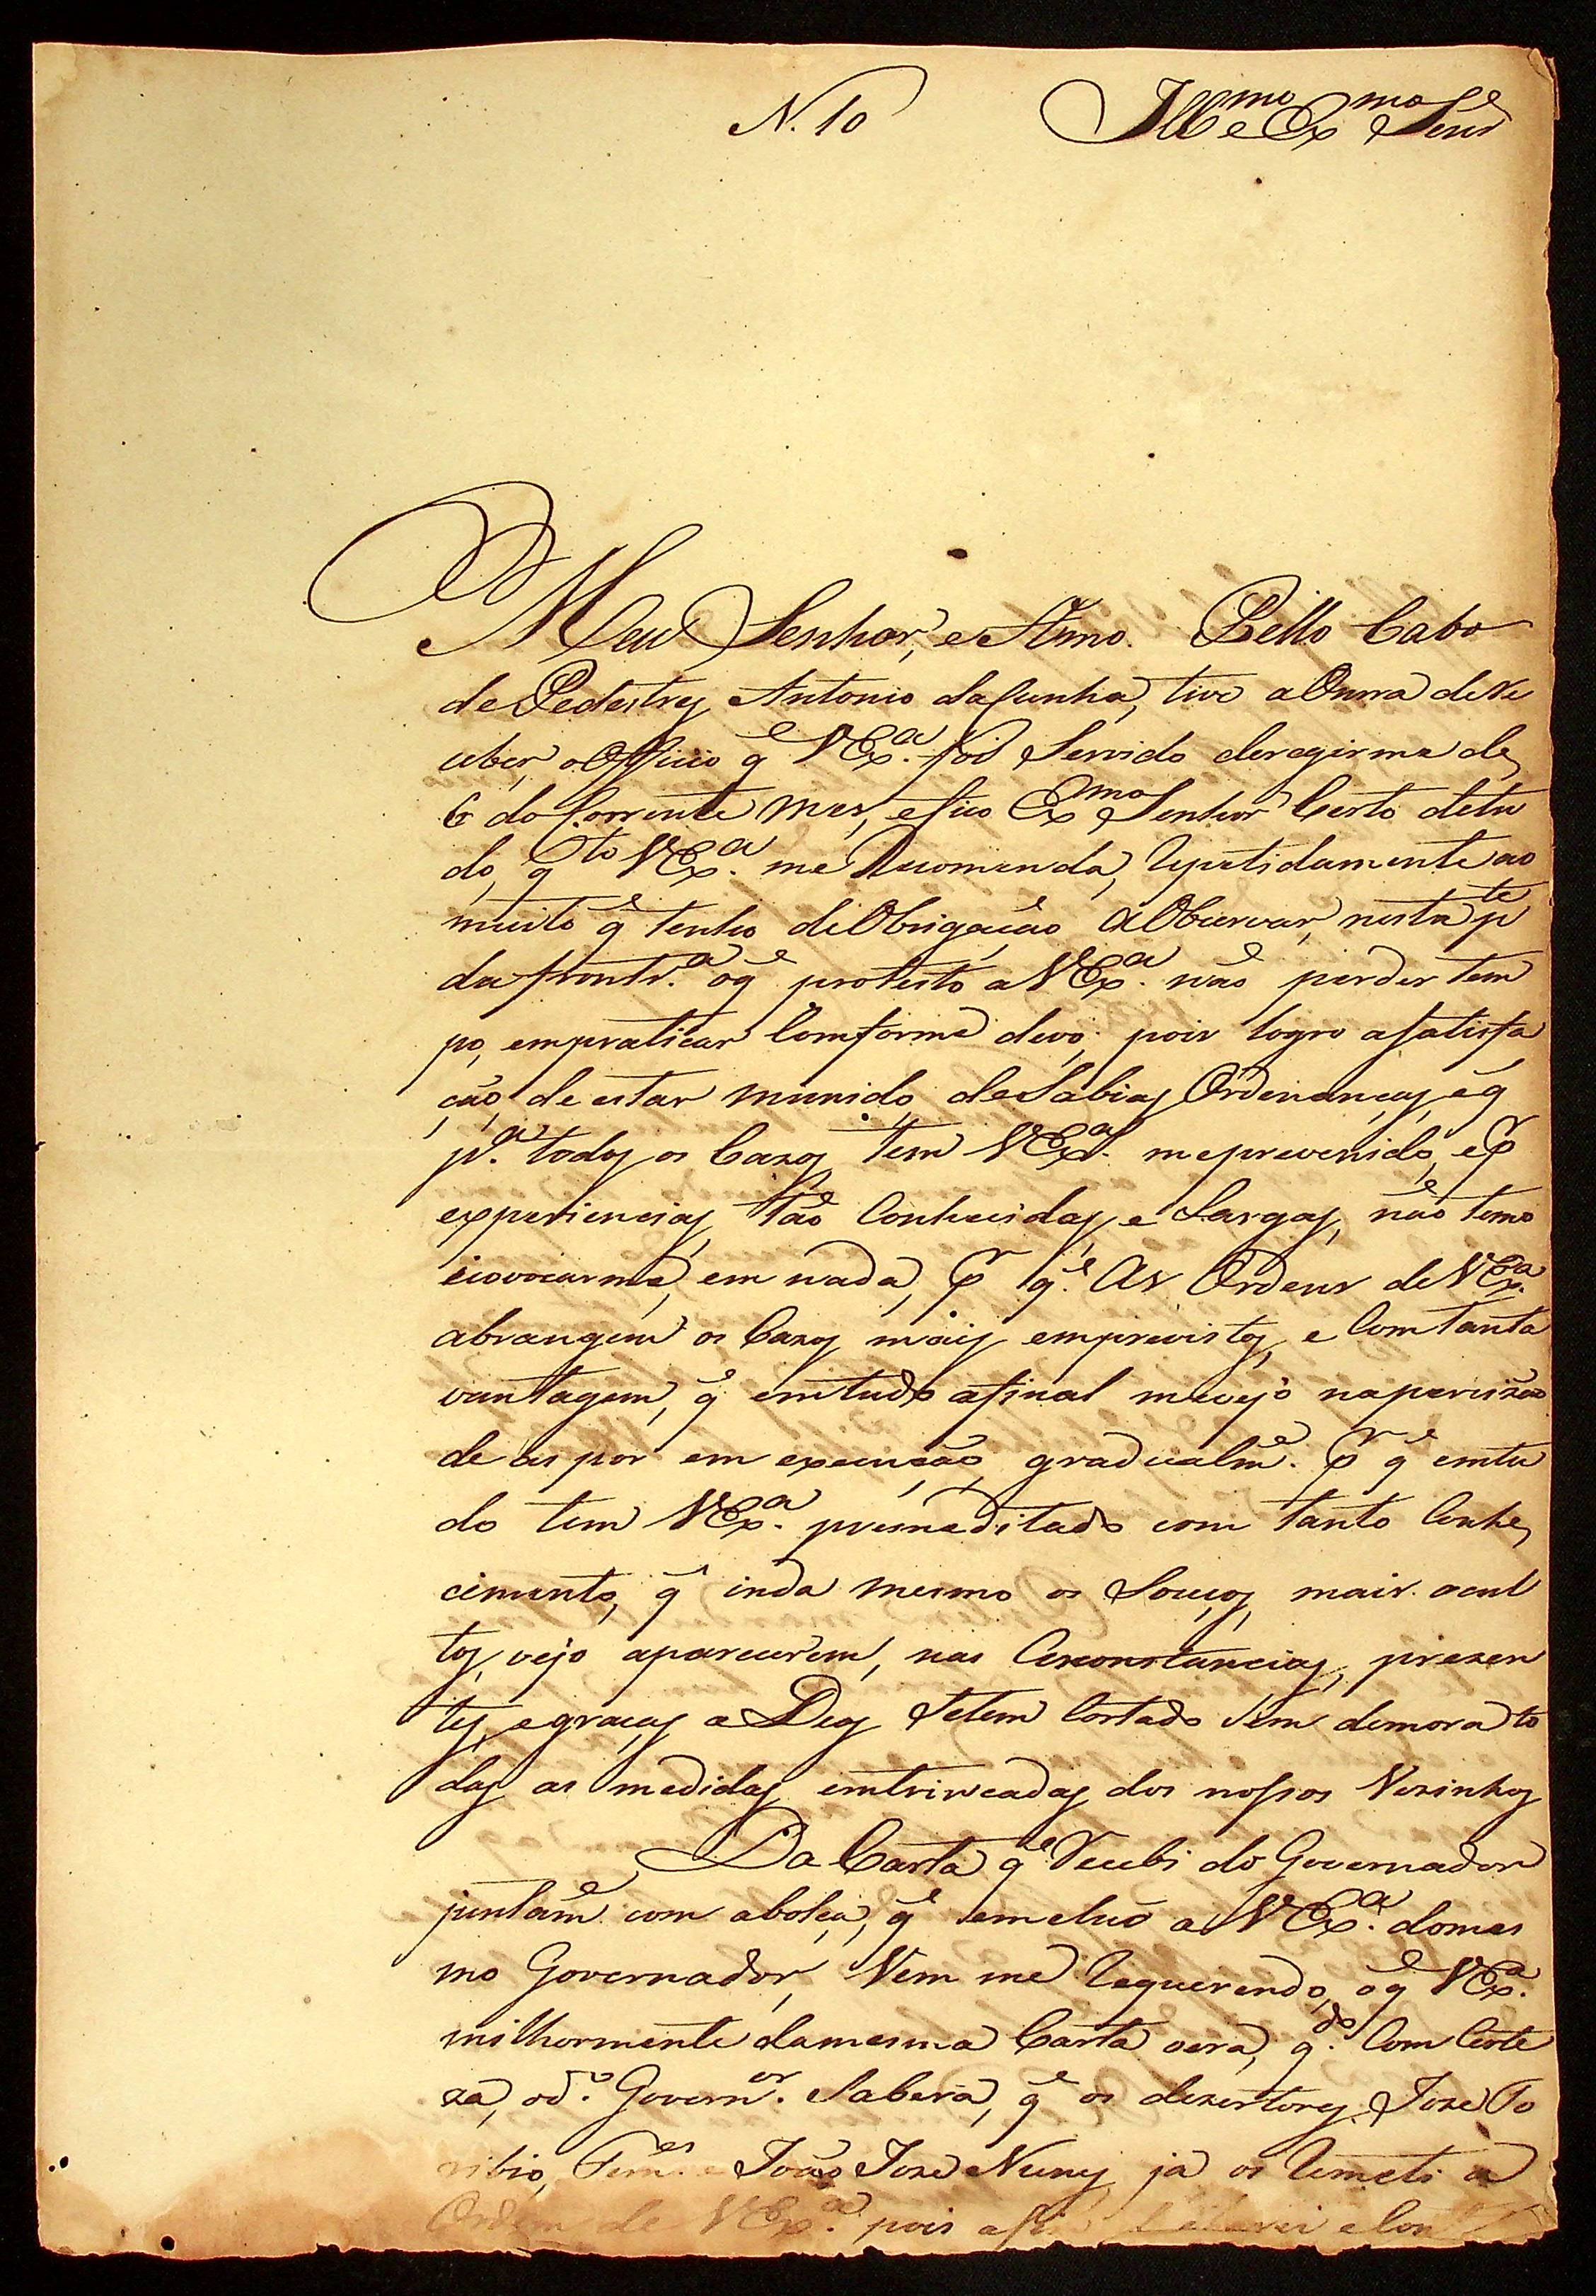 N. 10
Ill.mo e Ex.mo Senr
Meu Senhor, e Amo. Pello Cabo
de Pedestres Antonio da Cunha, tive a Onrra de Re
ceber o Officio q̃ V Ex.a foi Servido deregirme de
6 do Corrente Mes, e fico Ex.mo Senhor Certo de tu
do, q.to V Ex.a me Recomenda, Repetidamente ao
muito q̃ tenho de Obrigação a Obcervar, nesta p.te
da frontr.a o q̃ protesto a V Ex.a não perder tem
po, em praticar Comforme devo, pois logro a satisfa
ção, de estar munido, de Sabias Ordenanças, e q̃
p.a todos os Cazos tem V Ex.a me prevenido, e p.r
experiencias, tão Conhecidas, e Largas, não temo
eicovocarme, em nada, p.r q̃. As Ordens de V Ex.a
abrangem os Cazos mais emprevistos, e Com tanta
vantagem, q̃ em tudo afinal me vejo na percizão
de as por em execução, gradualm̃.e p.r q̃ em tu
do tem V Ex.a premeditado com tanto Conhe
cimento, q̃ inda mesmo os Soucos, mais ocul
tos, vejo aparecerem, nas Cerconstancias, prezen
tes, e graças a Deos se tem Cortado sem demora to
das as medidas emtrincadas dos nossos Vezinhos
Da Carta q̃ Recebi do Governador
juntam̃.e com a bolça, q̃ remeto a V Ex.a do mes
mo Governador, Vem me Requerendo, o q̃ V Ex.a
milhormente da mesma Carta verá, q.do Com Certe
za, o d.o Govern.or Saberá, q̃ os dezertores Joze To
ribio, e João Joze Nunes ja os Remeti a
Ordem de V Ex.a pois